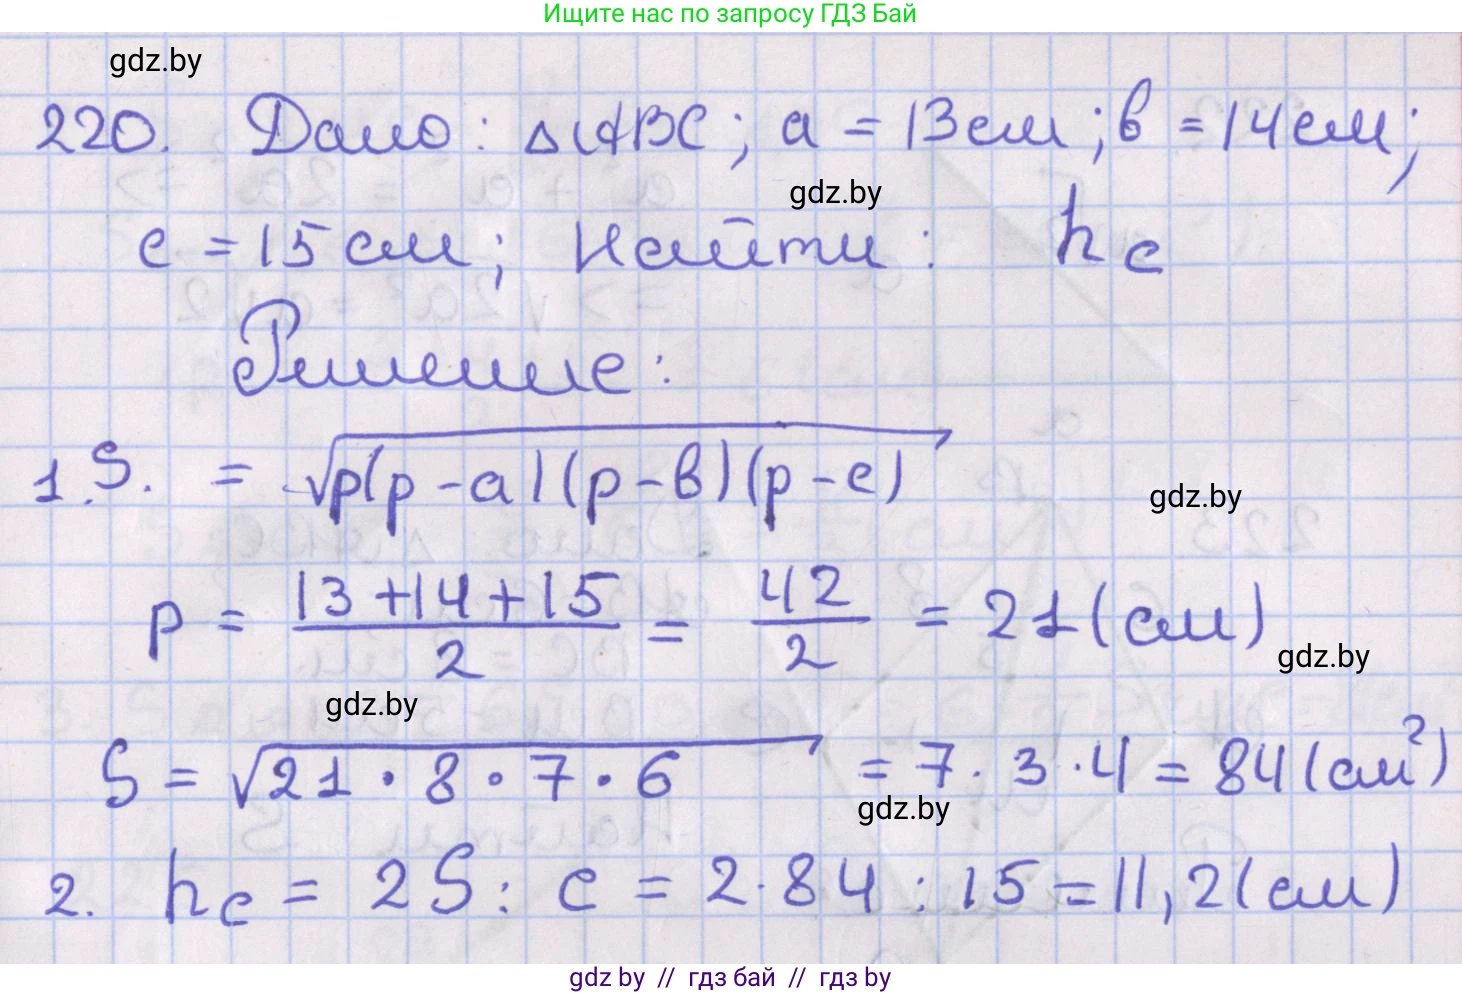 Ищите нас по запросу ГДЗ Бай
gdz.by
220. Дано: △ABC; a = 13см; в = 14см;
gdz.by
c = 15см; Найти: hc
Решение:
1. S. = √p(p-a)(p-в)(p-c)
gdz.by
p = (13+14+15)/2 = 42/2 = 21(см)
gdz.by
gdz.by
S = √21·8·7·6 = 7·3·4 = 84(см²)
gdz.by
2. hc = 2S : c = 2·84 : 15 = 11,2(см)
gdz by // гдз бай // гдз by